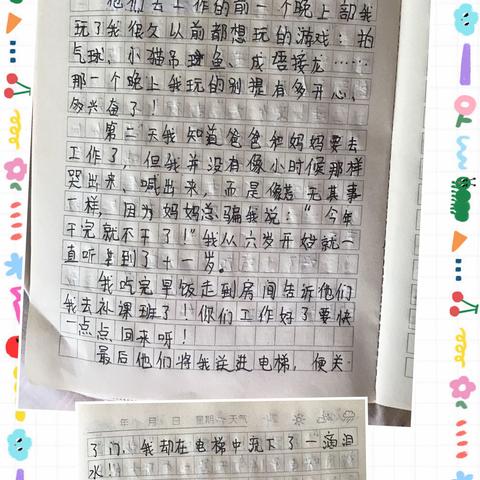 他们去工作的前一个晚上都我
玩了我很久以前都想玩的游戏：拍
气球、小猫吊鱼、成语接龙……
那一个晚上我玩的别提有多开心、
多兴奋了！
第二天我知道爸爸和妈妈要去
工作了，但我并没有像小时候那样
哭出来、喊出来，而是像若无其事
一样，因为妈妈总骗我说：“今年
干完就不干了！”我从六岁开始就一
直听到了十一岁。
我吃完早饭走到房间告诉他们
我去补课班了！你们工作好了要快
一点点回来呀！
最后他们将我送进电梯，便关
年 月 日 星期 天气
了门，我却在电梯中流下了一滴泪
水！